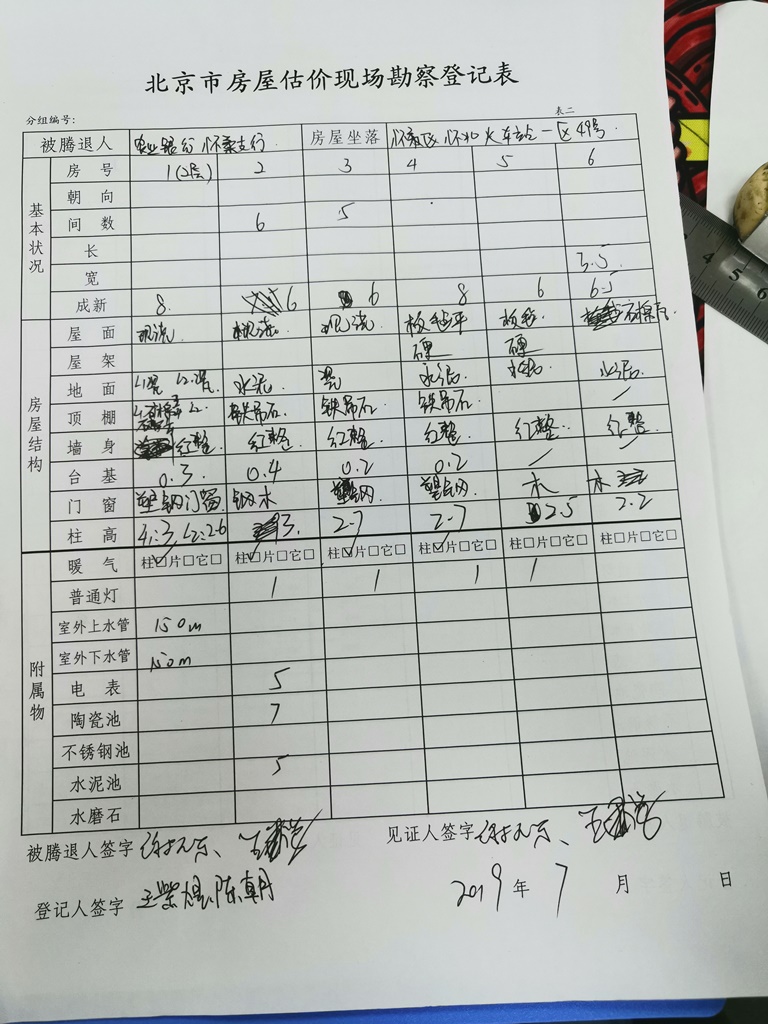 北京市房屋估价现场勘察登记表
分组编号: 表二
被腾退人 农业银行怀柔支行. 房屋坐落 怀柔区怀北火车站一区49号.
基本状况
房号 1(2层) 2 3 4 5 6
朝向
间数 6 5
长
宽 3.5
成新 8. 6 6 8 6 6.5
房屋结构
屋面 现浇. 现浇. 现浇.
屋架 硬 硬
地面 水泥. 水泥. 水泥 水泥.
顶棚 铁吊石. 铁吊石. 铁吊石. /
墙身 红整. 红整. 红整. 红整. 红整. 红整.
台基 0.3. 0.4 0.2 0.2 / /
门窗 塑钢门窗 钢木 塑钢. 木 木
柱高 L1:3, L2:2.6 3. 2.7 2.7 2.5 2.2
附属物
暖气 柱☑片□它□ 柱☑片□它□ 柱☑片□它□ 柱□片□它□ 柱□片□它□ 柱□片□它□
普通灯 1 1 1 1
室外上水管 150m
室外下水管 150m
电表 5
陶瓷池 7
不锈钢池
水泥池 5
水磨石
被腾退人签字 见证人签字
登记人签字 2019年 7 月 日
4 5 6